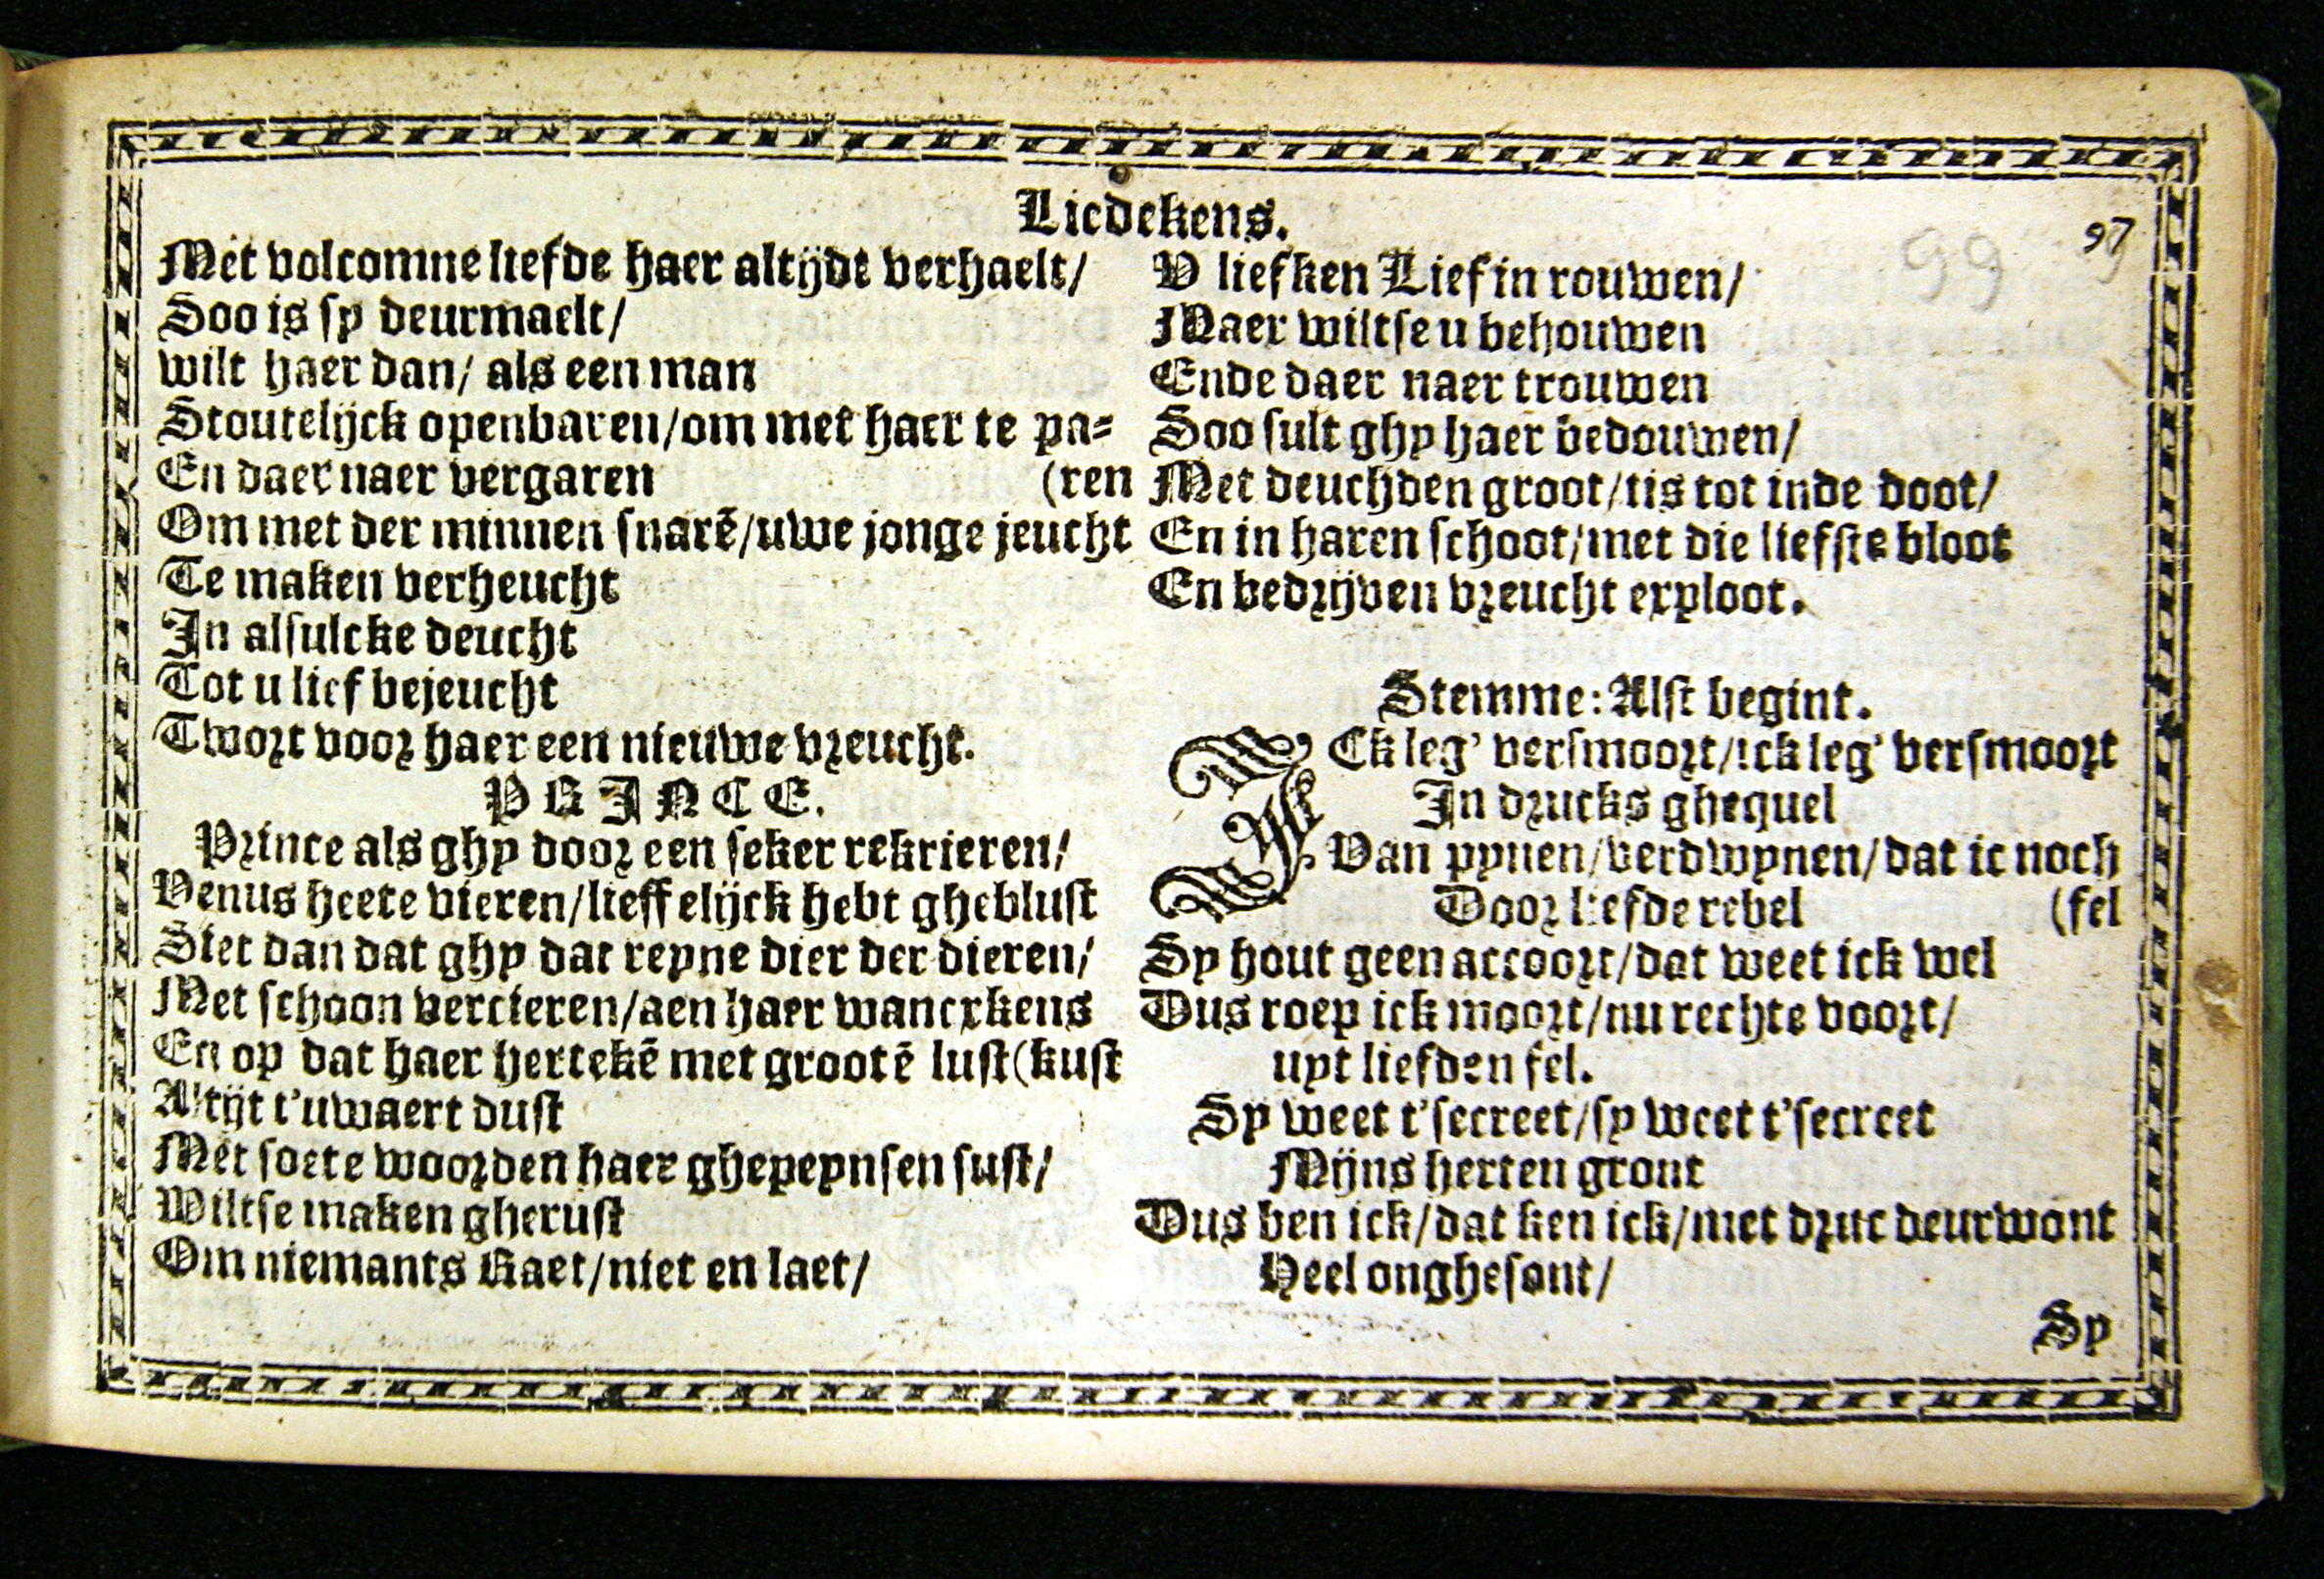 Liedekens.
97
99
Met volcomne liefde haer altijdt verhaelt/
Soo is sy deurmaelt/
wilt haer dan/ als een man
Stoutelijck openbaren/om met haer te pa⸗
En daer naer vergaren (ren
Om met der minnen snarē/uwe jonge jeucht
Te maken verheucht
In alsulcke deucht
Tot u lief bejeucht
Twort voor haer een nieuwe vreucht.
PRINCE.
Prince als ghy door een seker rekrieren/
Venus heete vieren/lieffelijck hebt gheblust
Siet dan dat ghy dat reyne dier der dieren/
Met schoon vercieren/aen haer wancxkens
En op dat haer hertekē met grootē lust (kust
Altijt t'uwaert dust
Met soete woorden haer ghepeynsen sust/
Wiltse maken gherust
Om niemants Raet/niet en laet/
V liefken Lief in rouwen/
Maer wiltse u behouwen
Ende daer naer trouwen
Soo sult ghy haer bedouwen/
Met deuchden groot/tis tot inde doot/
En in haren schoot/met die liefste bloot
En bedrijven vreucht exploot.
Stemme: Alst begint.
ICk leg' versmoort/ick leg' versmoort
In drucks ghequel
Van pynen/verdwynen/dat ic noch
Door liefde rebel (fel
Sy hout geen accoort/dat weet ick wel
Dus roep ick moort/nu rechte voort/
uyt liefden fel.
Sy weet t'secreet/sy weet t'secreet
Mijns herten gront
Dus ben ick/dat ken ick/met druc deurwont
Heel onghesont/
Sy